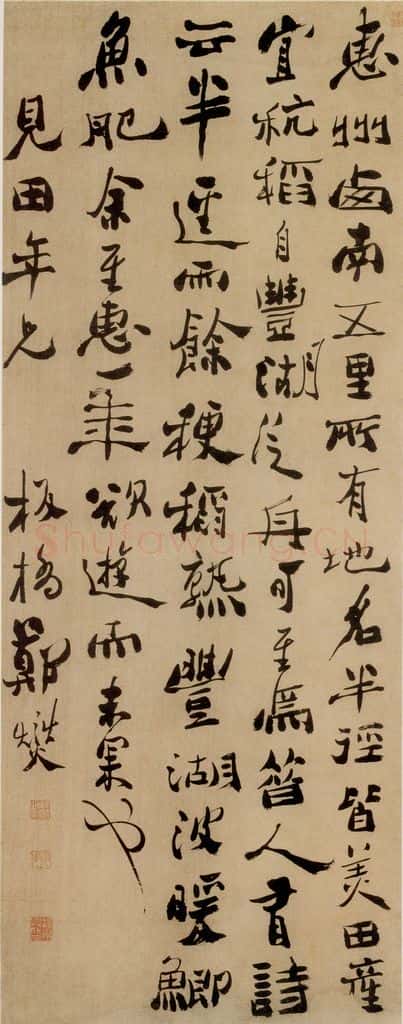 惠州西南五里所有地名半徑皆美田產
宜秔稻自豐湖泛舟可至焉昔人有詩
云半逕雨餘稉稻熟豐湖波暖鯽
魚肥余至惠一年欲遊而未果也
見田年兄
板橋鄭燮
Shufawang.CN